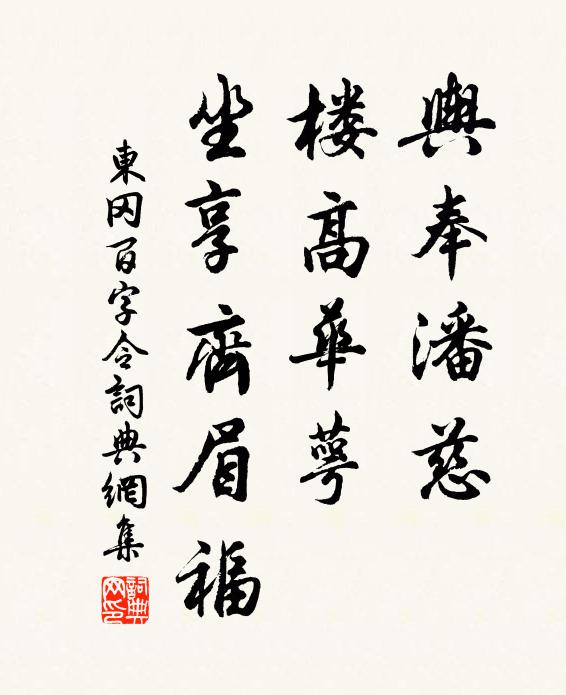 輿奉潘慈
楼高華萼
坐享齊眉福
東冈百字令詞典網集
詞典网印